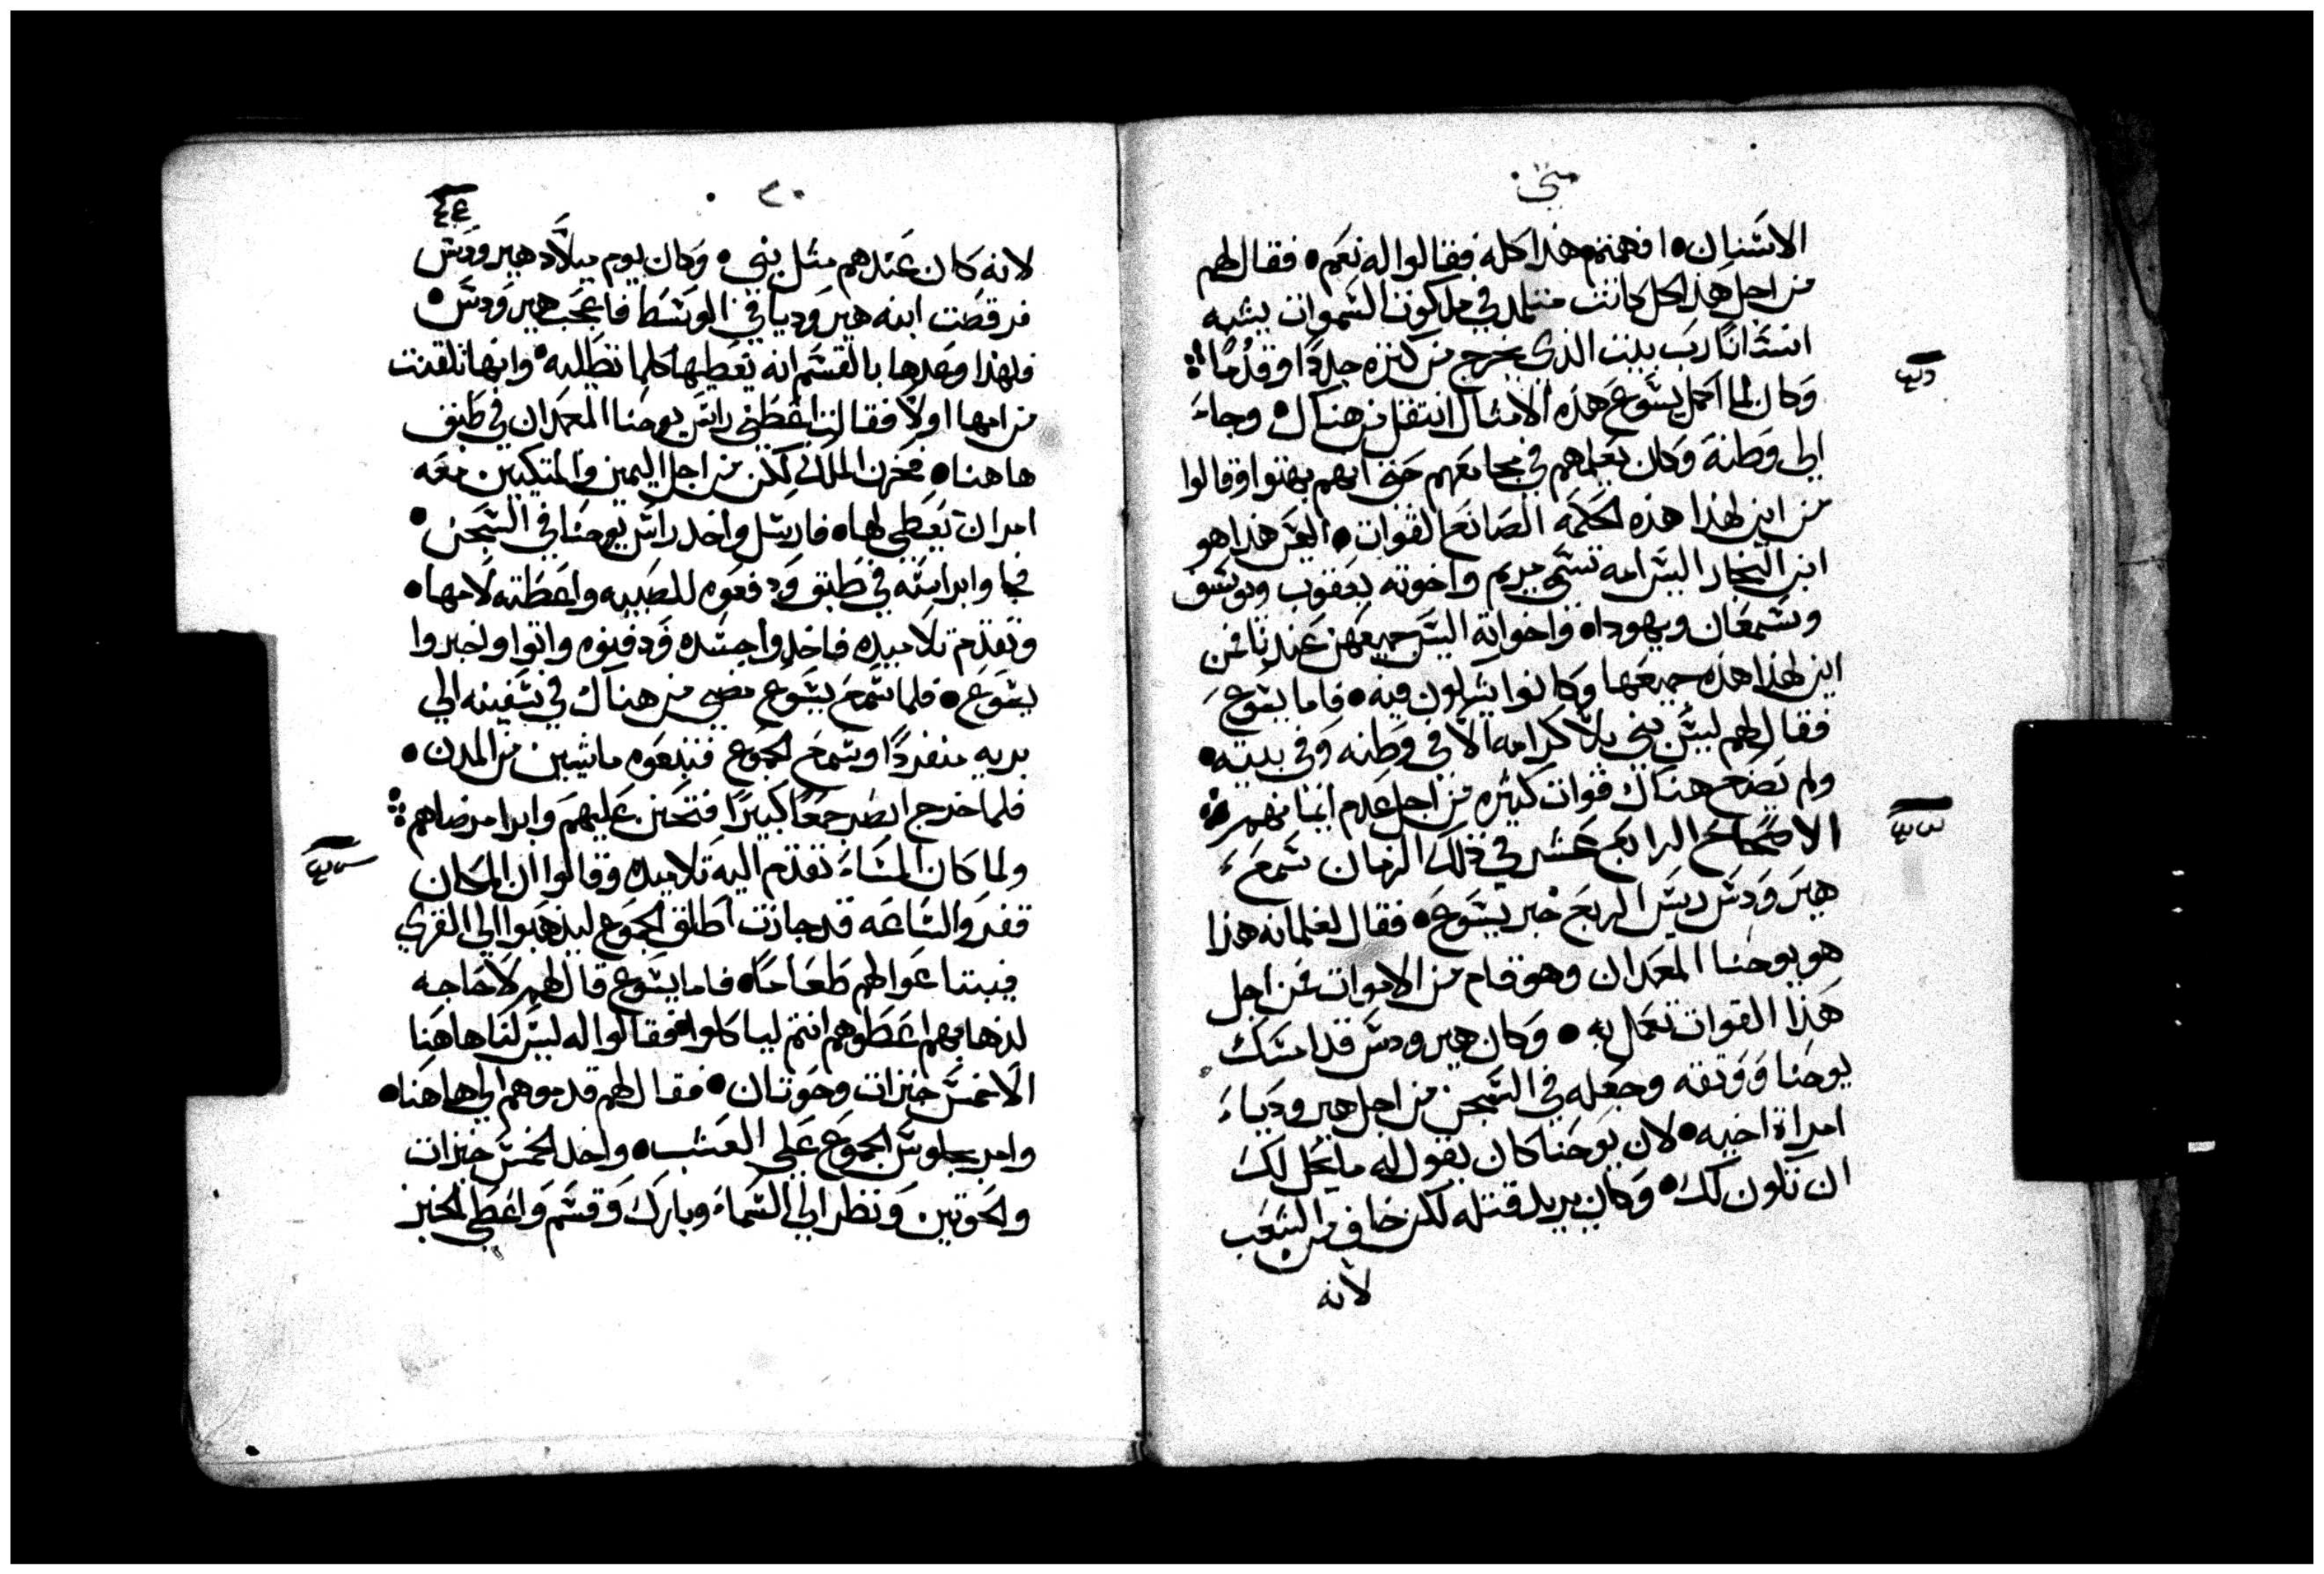 متى
الاسنان افهمتم هذا كله فقالوا له نعم فقال لهم
من اجل هذا كل كاتب متتلمد في ملكوت السموات يشبه
انسانا رب بيت الذي يخرج من كنزه جددا وقدما
وكان لما اكمل يسوع هذه الامثال انتقل من هناك وجاء
الى وطنة وكان يعلمهم في مجامعهم حتى انهم بهتوا وقالوا
من اين لهذا هذه الحكمه الصانع القوات اليس هذا هو
ابن النجار اليس امه تسمى مريم واخوته يعقوب ويوسف
وسمعان ويهودا واخواته اليس جميعهن عندنا فمن
اين لهذا هذه جميعها وكانوا يشكون فيه فاما يسوع
فقال لهم ليس نبي بلا كرامه الا في وطنه وفي بيته
ولم يصنع هناك قوات كثيره من اجل عدم ايمانهم
الاصحاح الرابع عشر في ذلك الزمان سمع
هيرودس ريس الربع خبر يسوع فقال لغلمانه هذا
هو يوحنا المعمدان وهو قام من الاموات فمن اجل
هذا القوات تعمل به وكان هيرودس قد امسك
يوحنا ووثقه وجعله في السجن من اجل هيروديا
امراة اخيه لان يوحنا كان يقول له ما يحل لك
ان تكون لك وكان يريد قتله لكن خاف من الشعب
لانه
٢٠
لانه كان عندهم مثل نبي وكان يوم ميلاد هيرودس
فرقصت ابنه هيروديا في الوسط فاعجب هيرودس
فلهذا وعدها بالقسم انه يعطيها كلما تطلبه وانها تلقنت
من امها اولا فقالت اعطني راس يوحنا المعمدان في طبق
هاهنا فحزن الملك لكن من اجل اليمين والمتكيين معه
امر ان يعطى لها فارسل واخد راس يوحنا في السجن
فجاوا براسه في طبق ودفعوه للصبيه واعطته لامها
وتقدم تلاميده فاخدوا جسده ودفنوه واتوا واخبروا
يسوع فلما سمع يسوع مضى من هناك في سفينه الى
بريه منفردا وسمع الجموع فتبعوه ماشيين من المدن
فلما خرج ابصر جمعا كبيرا فتحنن عليهم وابرا مرضاهم
ولما كان المساء تقدم اليه تلاميده وقالوا ان المكان
قفر والساعه قد جازت اطلق الجموع ليذهبوا الى القرى
فيبتاعوا لهم طعاما فاما يسوع قال لهم لا حاجه
لذهابهم اعطوهم انتم لياكلوا فقالوا له ليس لنا هاهنا
الا خمس خبزات وحوتان فقال لهم قدموهم الى هاهنا
وامر بجلوس الجموع على العشب واخد الخمس خبزات
والحوتين ونظر الى السماء وبارك وقسم واعطى الخبز